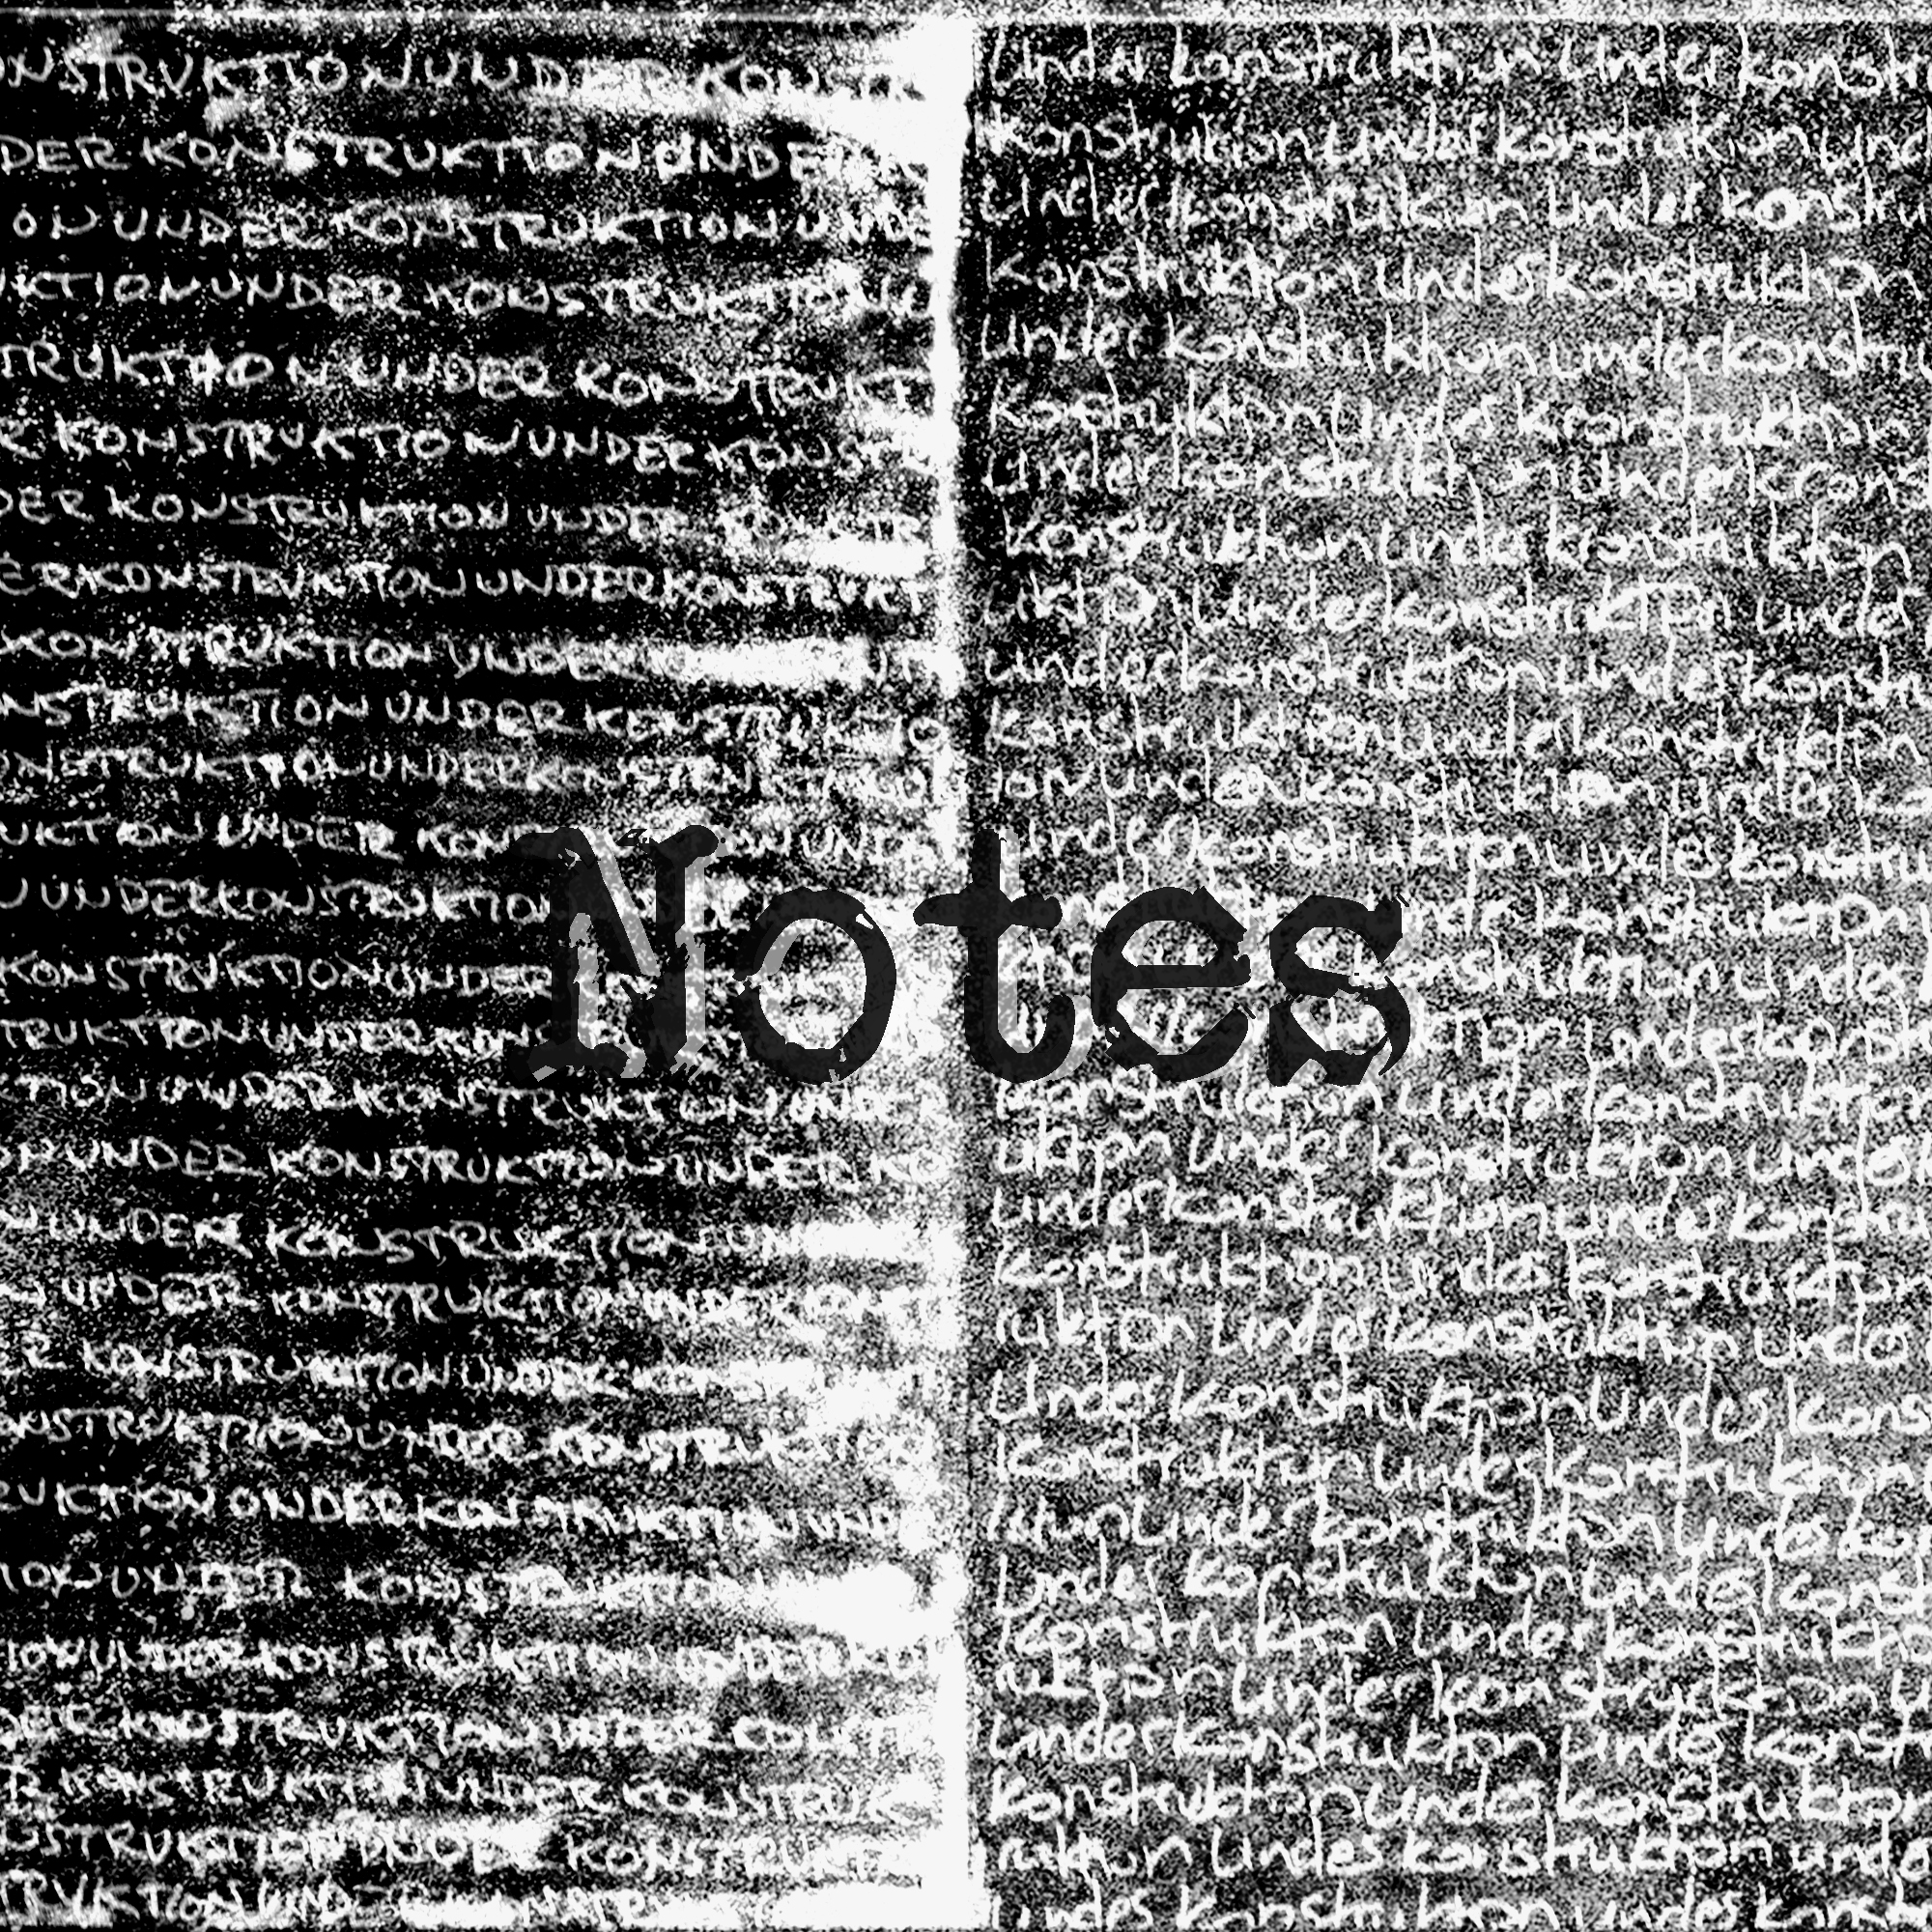 ONSTRUKTION UNDER KONSTR
DER KONSTRUKTION UNDER
ON UNDER KONSTRUKTION UNDE
UKTION UNDER KONSTRUKTION U
TRUKTION UNDER KONSTRUKT
R KONSTRUKTION UNDER KONST
DER KONSTRUKTION UNDER KONSTR
ERKONSTRUKTION UNDERKONSTRUKT
KONSTRUKTION UNDER
NSTRUKSTION UNDER KONSTRUKTIO
ONSTRUKTION UNDERKONSTR
UKTION UNDER KON
N UNDERKONSTRUKTION
KONSTRUKTION UNDER
TRUKTION UNDER KON
TION UNDER KONSTRUKTION UNDER
ON UNDER KONSTRUKTION UNDER KO
N UNDER KONSTRUKTION UN
N UNDER KONSTRUKTION UNDER KON
R KONSTRUKTION UNDER KONST
ONSTRUKTION UNDER KONSTRUKTION
RUKTION UNDERKONSTRUKTION UND
ION UNDER KONSTRUKTION
ION UNDER KONSTRUKTION UNDER KO
DER KONSTRUKTION UNDER KONST
R KONSTRUKTION UNDER KONSTRUK
NSTRUKTION UNDER KONSTRUKT
TRUKTION UNDE
Under konstruktion Under konstr
konstruktion Under konstruktion Und
Under konstruktion Under konstru
konstruktion Under konstruktion
Under konstruktion Under konstru
konstruktion Under konstruktion
Under konstruktion Under kons
konstruktion Under konstruktion
uktion Under konstruktion under
under konstruktion under konstru
konstruktion under konstruktion
ion Under konstruktion Under
under konstruktion under konstru
under konstruktion
konstruktion under
ktion Under konst
konstruktion under konstruktion
uktion under konstruktion under
under konstruktion under konstru
konstruktion Under konstruktion
ruktion Under konstruktion under
Under konstruktion Under kons
konstruktion Under konstruktion
ktion Under konstruktion Under ko
Under konstruktion under konst
konstruktion Under konstruktio
uktion Under konstruktion U
Under konstruktion Under konst
konstruktion under konstruktion
ruktion Under konstruktion unde
Under konstruktion under konst
Notes